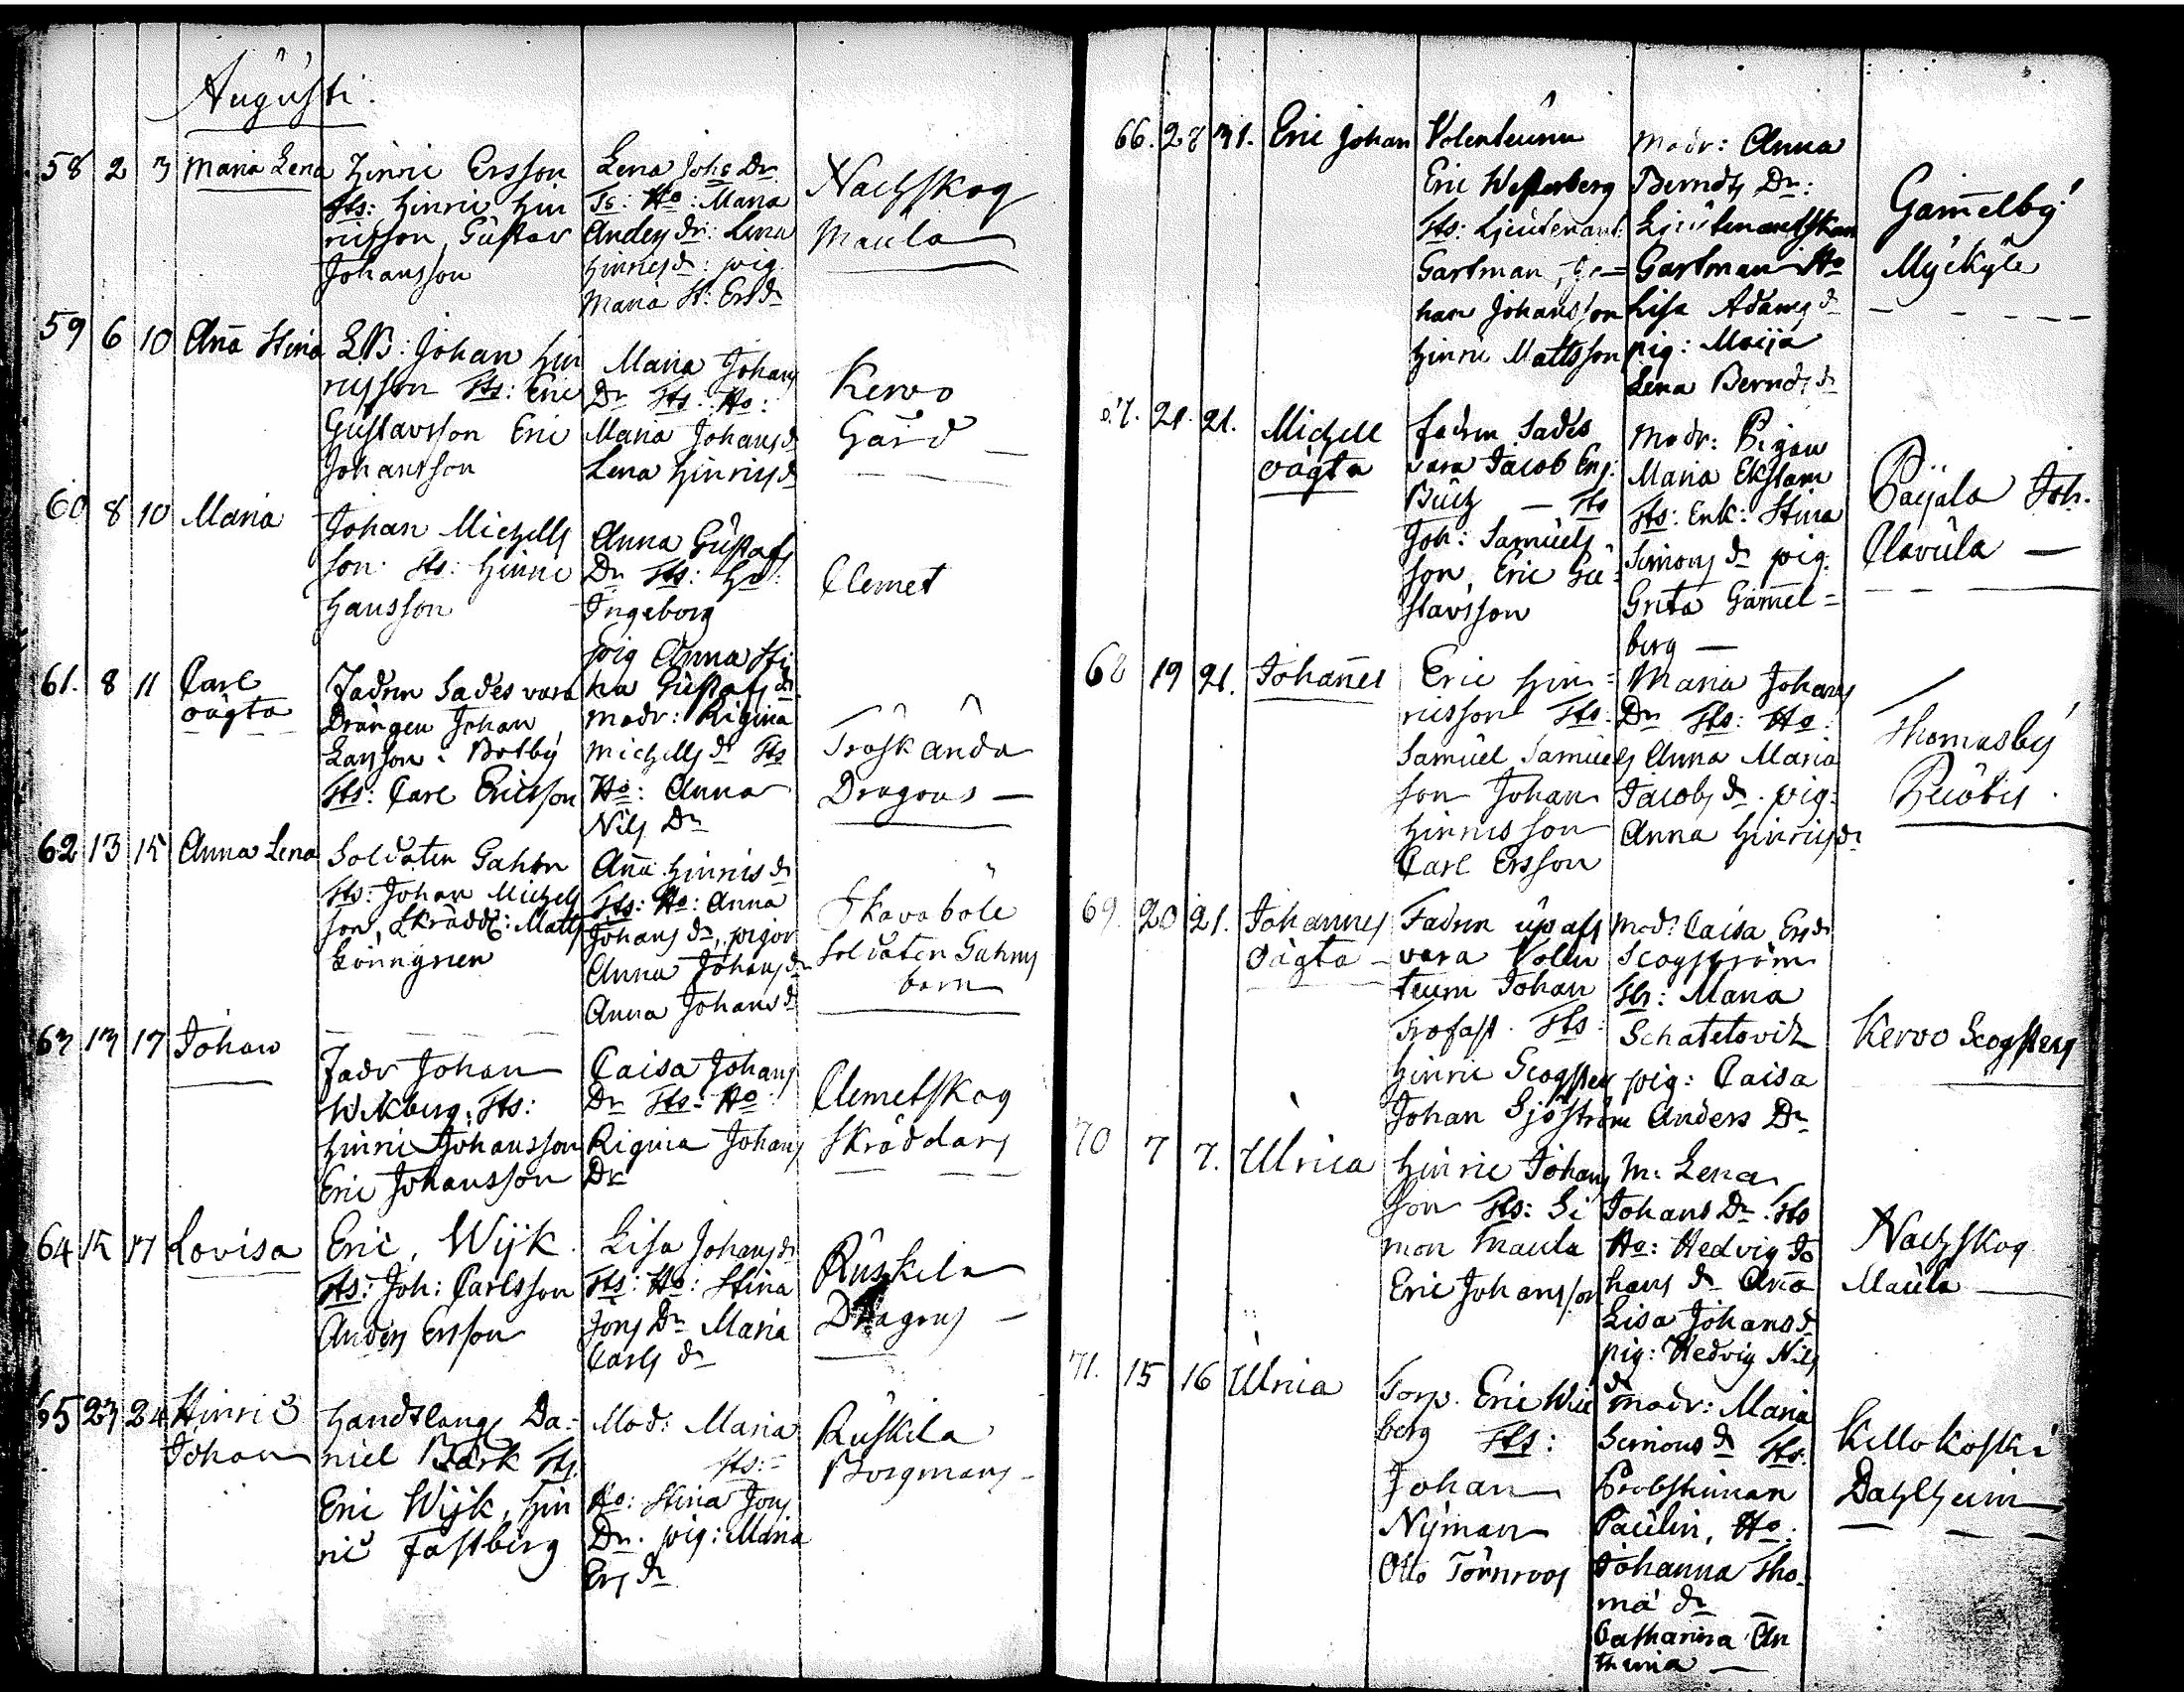 Augusti.
58 2 3 Maria Lena
Hinric Ersson
Sts: Hinric Hin
ricsson, Gustav
Johansson
Lena Johs Dr
Ts: Ho: Maria
Anders dr: Lena
Hinricsdr: pig.
Maria St: Ersdr
Nachskog
Maula
59 6 10 Anna Stina
LB: Johan Hin
ricsson Sts: Eric
Gustavsson Eric
Johansson
Maria Johans
Dr Sts: Ho:
Maria Johansdr
Lena Hinricsdr
Kervo
Gård
60 8 10 Maria
Johan Michells
son. Sts: Hinric
Hansson
Anna Gustafs
Dr Sts: Ho:
Ingeborg
pig Anna Sti
na Gustafs dr
Clemet
61. 8 11 Carl
oägta
Fadren Sades vara
Drängen Johan
Larsson. Botby
Sts: Carl Ericsson
modr: Rigina
Michells dr Sts
Ho: Anna
Nils Dr
Träskända
Dragons —
62 13 15 Anna Lena
Soldaten Gahrn
Sts: Johan Michels
son, Skrädd: Matts
Lönngren
Anna Hinrics dr
Sts: Ho: Anna
Johans dr, pigor
Anna Johans dr
Anna Johans dr
Skavaböle
Soldaten Gahrns
barn
63 13 17 Johan
Fadr Johan
Wikberg. Sts:
Hinric Johansson
Eric Johansson
Caisa Johans
Dr Sts: Ho
Rigina Johans
Dr
Clemetskog
Skräddars
64 15 17 Lovisa
Eric, Wijk.
Sts: Joh: Carlsson
Anders Ersson
Lisa Johans dr
Sts: Ho: Stina
Jons Dr Maria
Carls dr
Ruskila
Dragons —
65 23 24 Hinric
Johan
Handtlang Da=
niel Bärk Sts
Eric Wijk, Hin
ric Fastberg
Mod: Maria
Sts:=
Ho: Stina Jons
Dr. pig: Maria
Ers dr
Ruskila
Borgmans —
66. 28 31. Eric Johan
Volenteuren
Eric Westerberg
Sts: Ljeutenant
Gartman, Jo=
han Johansson
Hinric Mattsson
Modr: Anna
Berndts Dr:
Ljeutenantskan
Gartman Ho
Lisa Adams dr
pig: Maija
Lena Bernds dr
Gammelby
Myckyle
67. 21. 21. Michell
oägta
fadren Sades
vara Jacob Eng:
Buch — Sts
Joh: Samuels
son, Eric Gu=
stavsson
Modr: Pigan
Maria Ekstam
Sts: Enk: Stina
Simons dr pig.
Greta Gammel=
berg —
Paijala Joh.
Clavula —
68 19 21. Johannes
Eric Hin=
ricsson Sts:
Samuel Samuels
son Johan
Hinricsson
Carl Ersson
Maria Johans
Dr Sts: Ho:
Anna Maria
Jacobs dr. pig:
Anna Hinrics dr
Thomasby
69. 20 21. Johannes
Oägta —
Fadren
vara Volen
teuren Johan
Trofast. Sts:
Hinric Scogster
Johan Sjöström
Mod: Caisa Ers dr
Scogström
Sts: Maria
Schatelowitz
pig: Caisa
Anders Dr
Kervo Scogsters
70 7 7. Ulrica
Hinric Johans
son Sts: Si
mon Maula
Eric Johansson
M: Lena
Johans Dr. Sts
Ho: Hedvig Jo
hans dr Anna
Lisa Johans dr
pig: Hedvig Nils
dr
Nachskog
Maula —
71. 15 16 Ulrica
Torp. Eric Wic
berg Sts:
Johan
Nyman
Otto Törnroos
modr: Maria
Simons dr Sts:
Probstinnan
Paulin, Ho:
Johanna Tho=
ma dr
Catharina
Kellokoski
Dahlheim